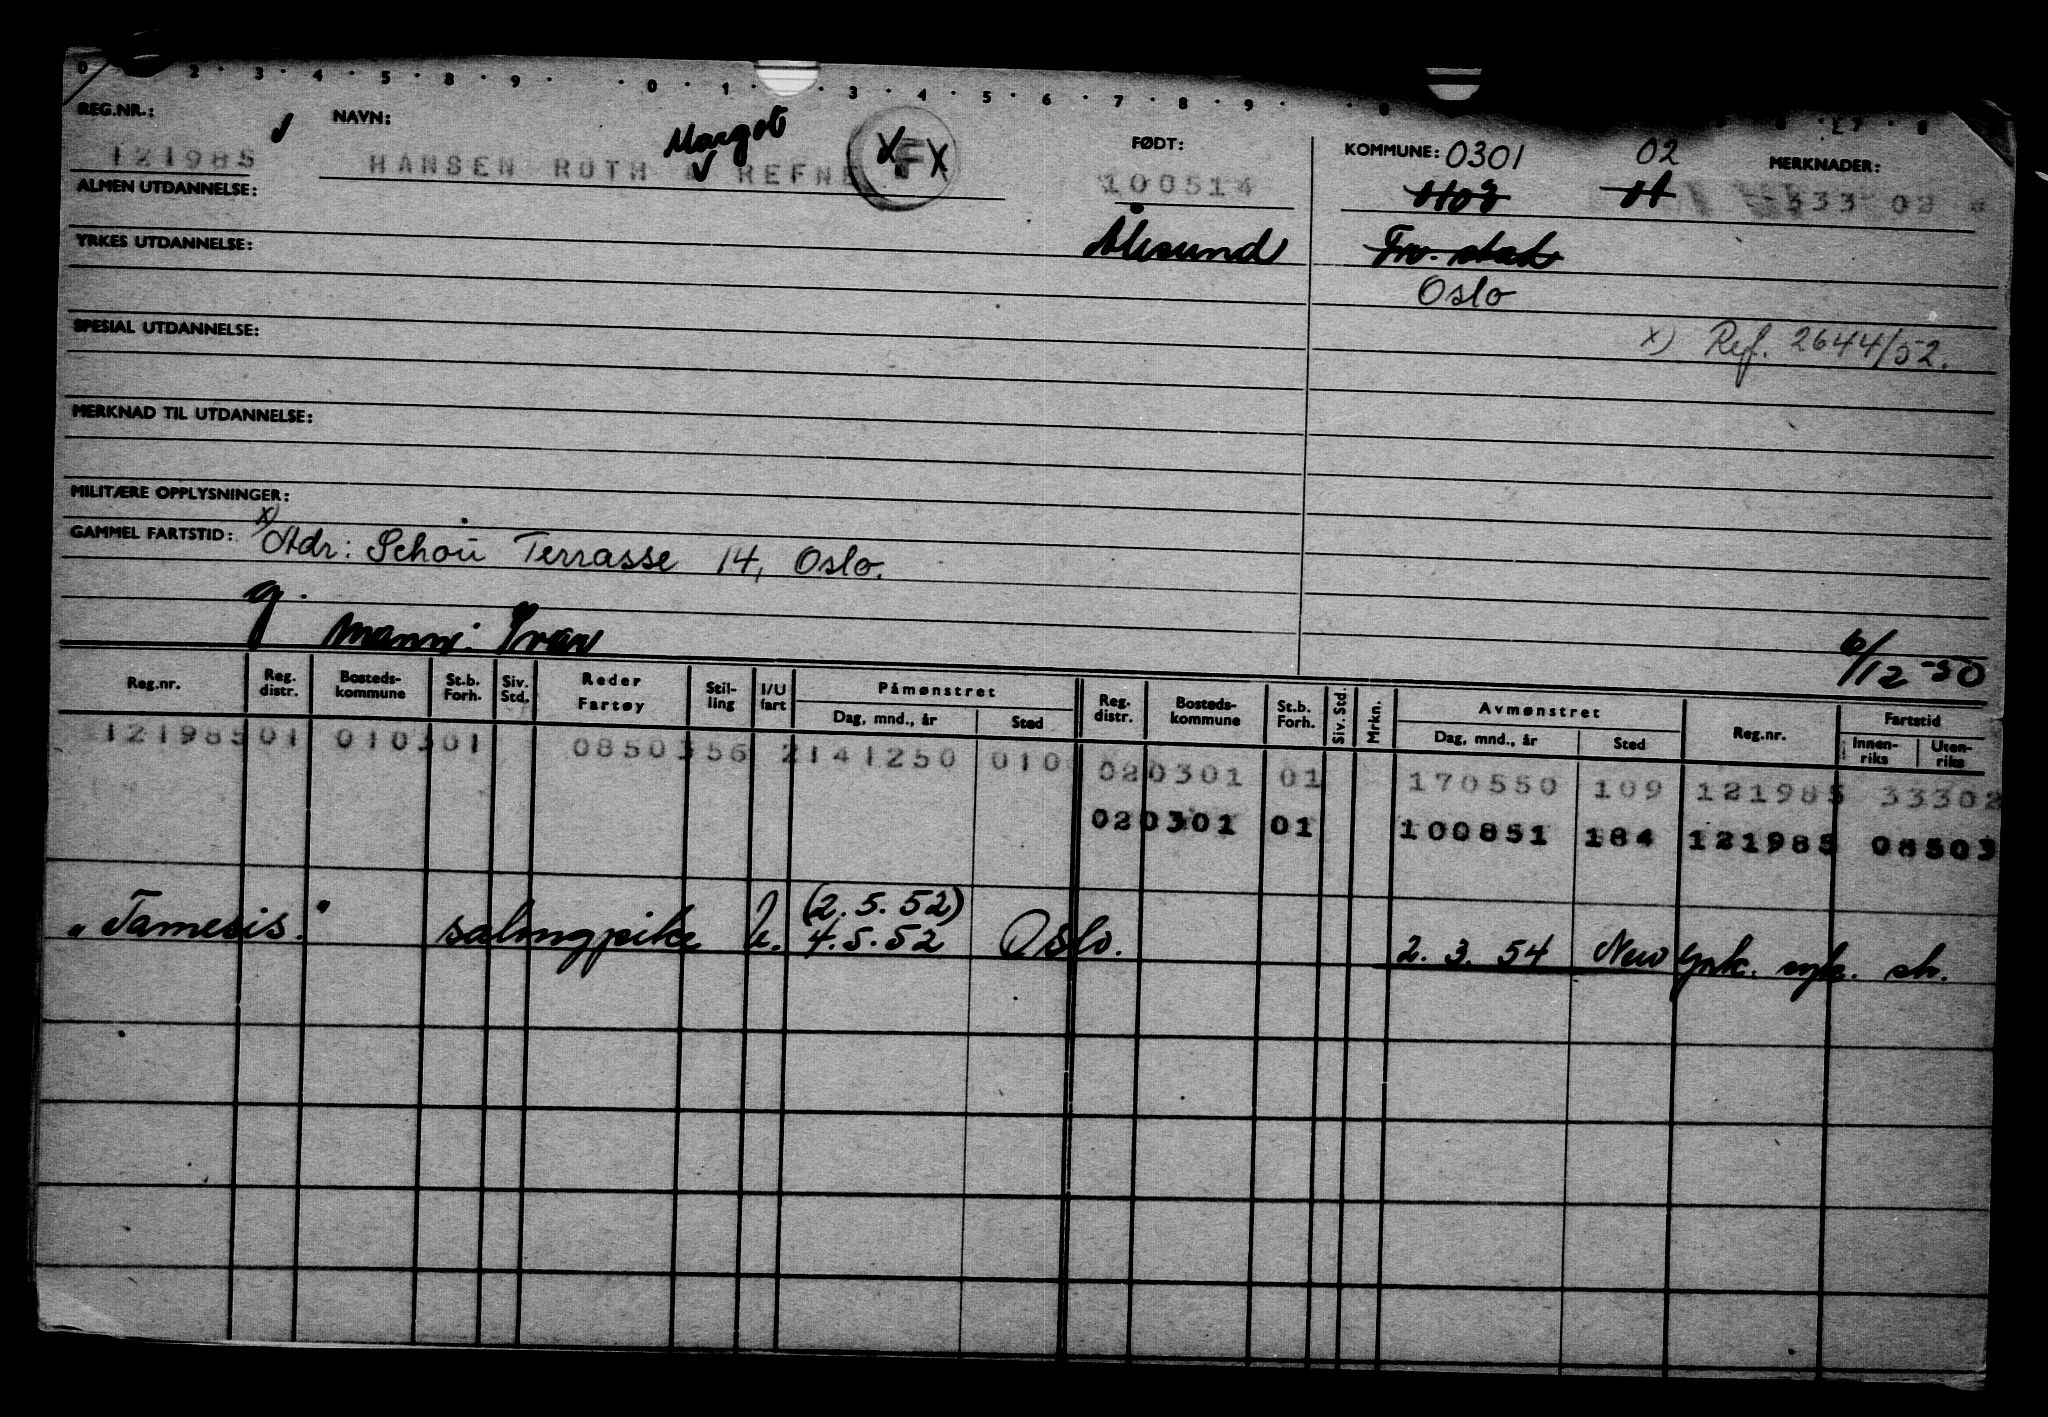 0 2 · 3 · 4 · 5 · 8 · 9 · · 0 · 1 · 3 · 4 · 5 · 6 · 7 · 8 · 9 ·
REG.NR.: NAVN: Margot FØDT: KOMMUNE: 0301 02 MERKNADER:
121985 HANSEN RUTH REFNE 100514 333 02
ALMEN UTDANNELSE:
YRKES UTDANNELSE: Ålesund Fr. stad
Oslo
SPESIAL UTDANNELSE: x) Ref. 2644/52.
MERKNAD TIL UTDANNELSE:
MILITÆRE OPPLYSNINGER:
GAMMEL FARTSTID: x) Adr: Schou Terrasse 14, Oslo.
g. mann: Ivar 6/12-50
Reg.nr. Reg. distr. Bosteds-kommune St.b. Forh. Siv. Std. Reder Fartøy Stil-ling I/U fart Påmønstret Dag, mnd., år Sted Reg. distr. Bosteds-kommune St.b. Forh. Siv. Std. Mrkn. Avmønstret Dag, mnd., år Sted Reg.nr. Fartstid Innen-riks Uten-riks
121985 01 0103 01 0850356 2 141250 010
02 0301 01 170550 109 121985 33302
02 0301 01 100851 184 121985 08503
(2.5.52)
"Tamesis." salongpike u. 4.5.52 Oslo. 2.3.54 New York. syk. sh.